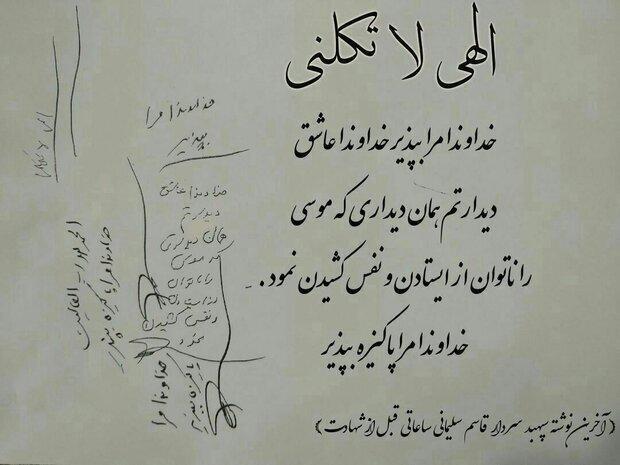 الهی لا تکلنی
خداوندا مرا بپذیر خداوندا عاشق
دیدارتم همان دیداری که موسی
را ناتوان از ایستادن و نفس کشیدن نمود .
خداوندا مرا پاکیزه بپذیر
( آخرین نوشته سپهبد سردار قاسم سلیمانی ساعاتی قبل از شهادت )
خداوندا مرا
بپذیر
خداوندا عاشق
دیدارتم
همان دیداری
که موسی
را ناتوان
از ایستادن
و نفس کشیدن
نمود
خداوندا مرا
پاکیزه بپذیر
الحمدلله رب العالمین
خداوندا مرا پاکیزه بپذیر
الهی لا تکلنی